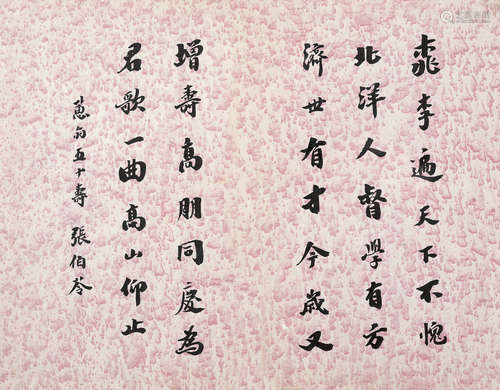 桃李遍天下不愧
北洋人督學有方
濟世有才今歲又
增壽高朋同慶為
君歌一曲高山仰止
蔥翁五十壽 張伯苓